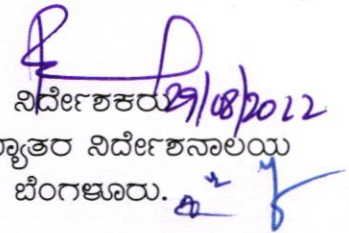 ನಿರ್ದೇಶಕರು 29/08/2022
ನಿರ್ದೇಶನಾಲಯ
ಬೆಂಗಳೂರು.